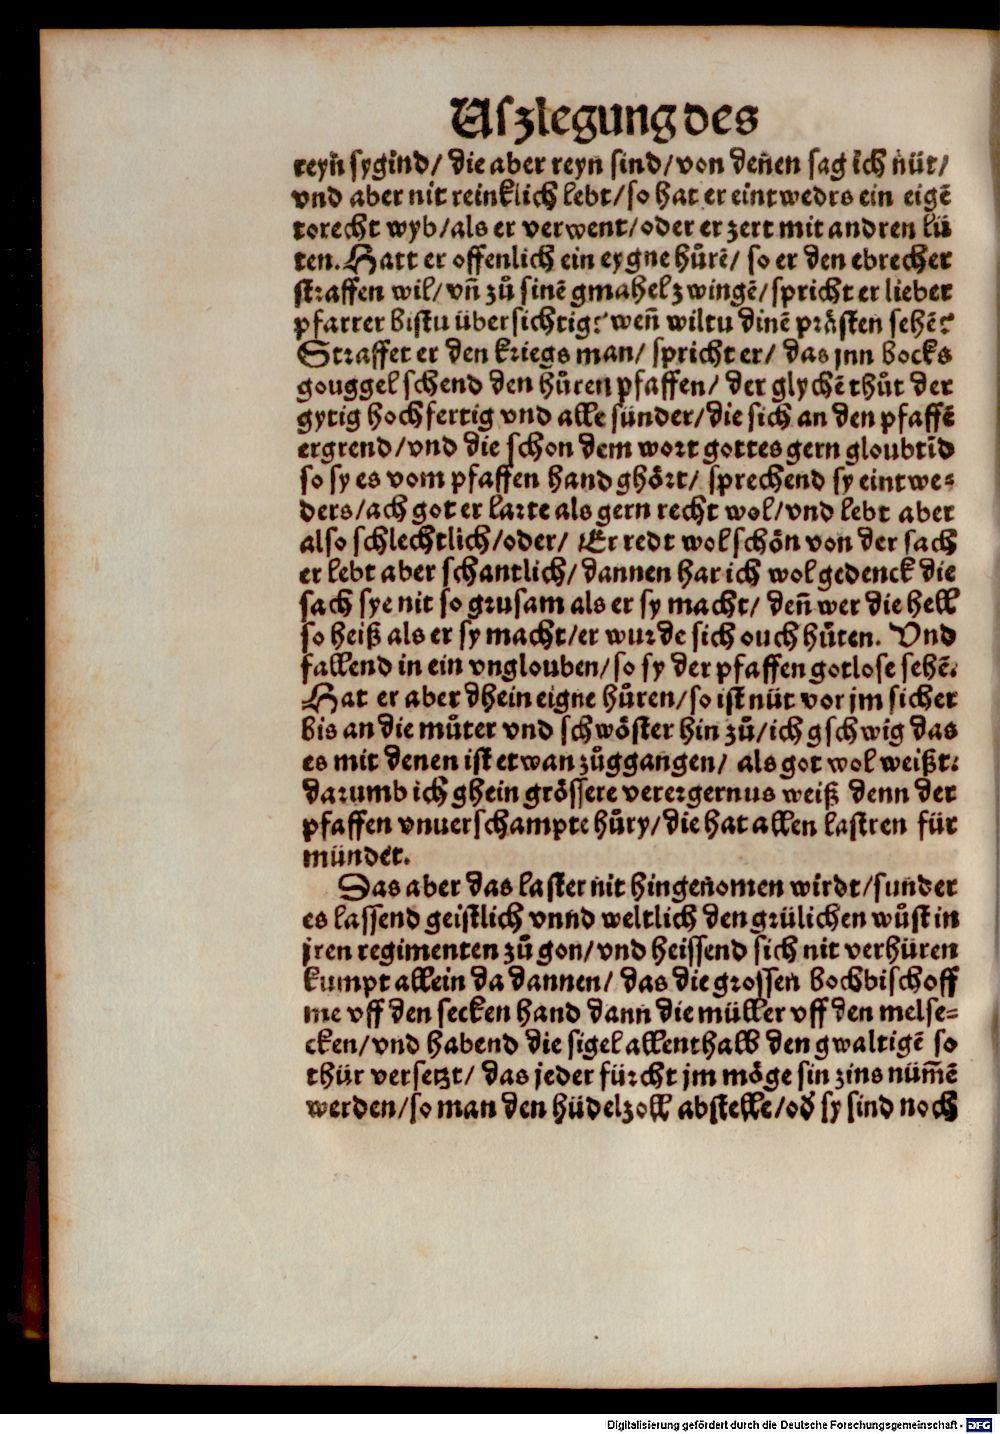 Uszlegung des
reyn sygind/ die aber reyn sind/ von denen sag ich nüt/
vnd aber nit reinklich lebt/ so hat er eintwedrs ein eigē
torecht wyb/ als er verwent/ oder er zert mit andren lü
ten. Hatt er offenlich ein eygne hůrē/ so er den ebrecher
straffen wil/ vñ zů sinē gmahel zwingē/ spricht er lieber
pfarrer bistu übersichtig? weñ wiltu dinē prästen sehē?
Straffet er den kriegs man/ spricht er/ das jnn bocks
gouggel schend den hůren pfaffen/ der glychē thůt der
gytig hochfertig vnd alle sünder/ die sich an den pfaffē
ergrend/ vnd die schon dem wort gottes gern gloubtīd
so sy es vom pfaffen hand ghört/ sprechend sy eintwe-
ders/ ach got er larte als gern recht wol/ vnd lebt aber
also schlechtlich/ oder/ Er redt wol schön von der sach
er lebt aber schantlich/ dannen har ich wol gedenck die
sach sye nit so grusam als er sy macht/ deñ wer die hell
so heiß als er sy macht/ er wurde sich ouch hůten. Vnd
fallend in ein vnglouben/ so sy der pfaffen gotlose sehē.
Hat er aber dhein eigne hůren/ so ist nüt vor jm sicher
bis an die můter vnd schwöster hin zů/ ich gschwig das
es mit denen ist etwan zůggangen/ als got wol weißt.
darumb ich ghein grössere verergernus weiß denn der
pfaffen vnuerschampte hůry/ die hat allen lastren für
mündet.
Das aber das laster nit hingenomen wirdt/ sunder
es lassend geistlich vnnd weltlich den grülichen wůst in
jren regimenten zů gon/ vnd heissend sich nit verhüren
kumpt allein da dannen/ das die grossen bochbischoff
me vff den secken hand dann die müller vff den melse-
cken/ vnd habend die sigel allenthalb den gwaltigē so
thür versetzt/ das jeder fürcht jm möge sin zins nüm̃ē
werden/ so man den hüdelzoll abstelle/ od̕ sy sind noch
Digitalisierung gefördert durch die Deutsche Forschungsgemeinschaft - DFG